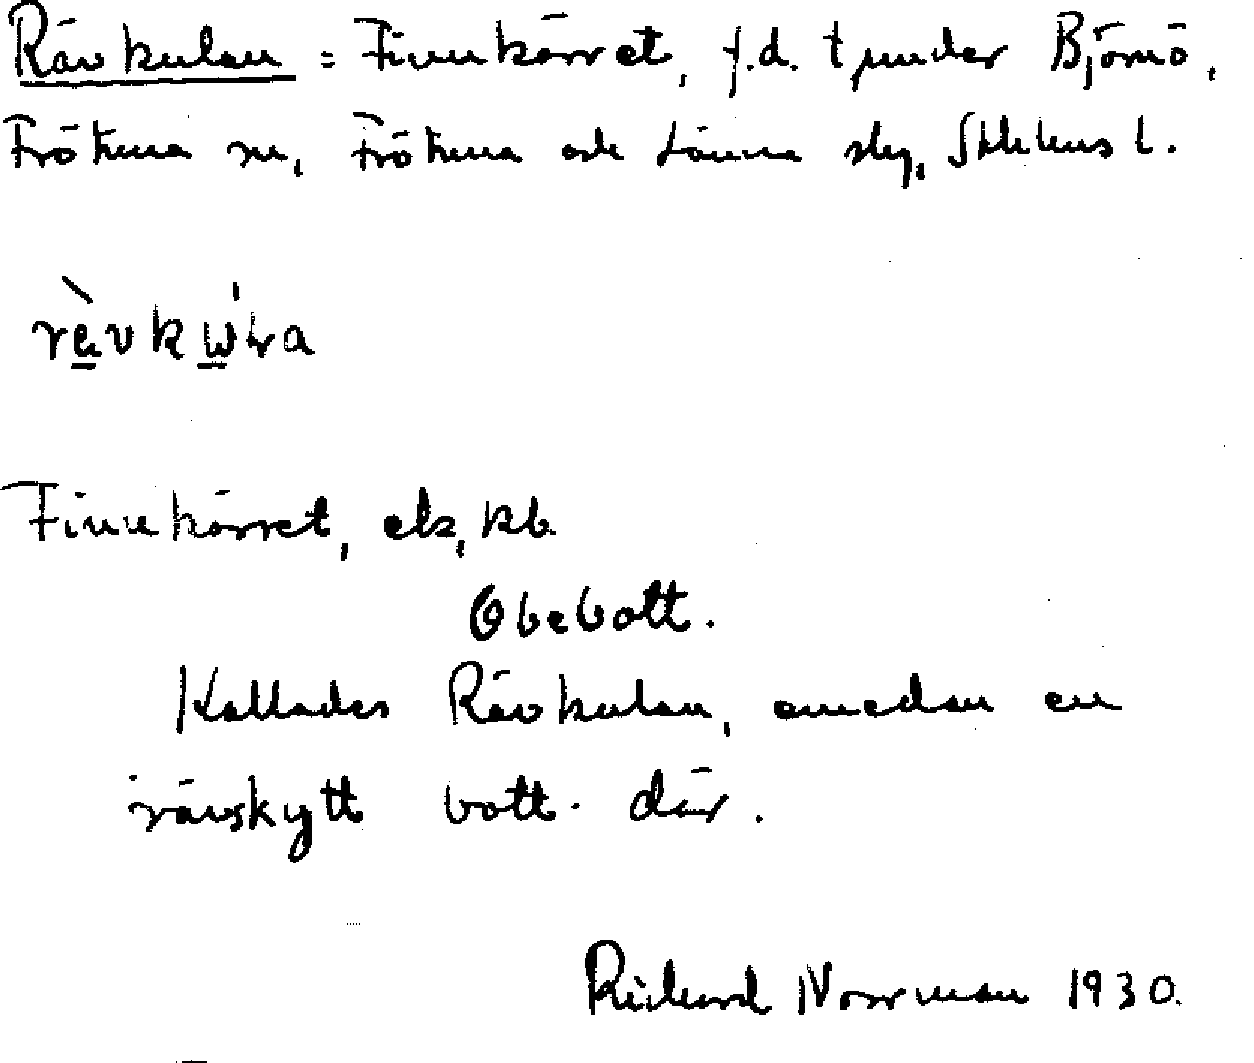 Rävkulan = Finnkärret, f.d. t under Björnö,
Frötuna sn, Frötuna och Länna sklg, Sthlms l.
rȁvkẁ́la
Finnkärret, ek, kb.
Obebott.
Kallades Rävkulan, emedan en
rävskytt bott där.
Richard Norrman 1930.